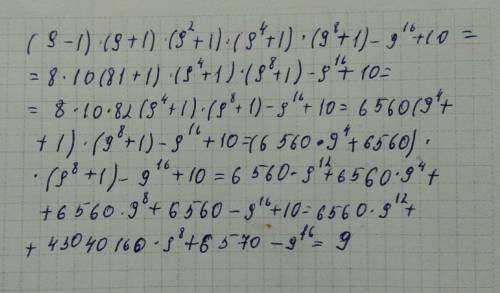 (9-1)·(9+1)·(9²+1)·(9⁴+1)·(9⁸+1)-9¹⁶+10=
=8·10(81+1)·(9⁴+1)·(9⁸+1)-9¹⁶+10=
=8·10·82(9⁴+1)·(9⁸+1)-9¹⁶+10=6560(9⁴+
+1)·(9⁸+1)-9¹⁶+10=(6560·9⁴+6560)·
·(9⁸+1)-9¹⁶+10=6560·9¹²+6560·9⁴+
+6560·9⁸+6560-9¹⁶+10=6560·9¹²+
+43040160·9⁸+6570-9¹⁶=9